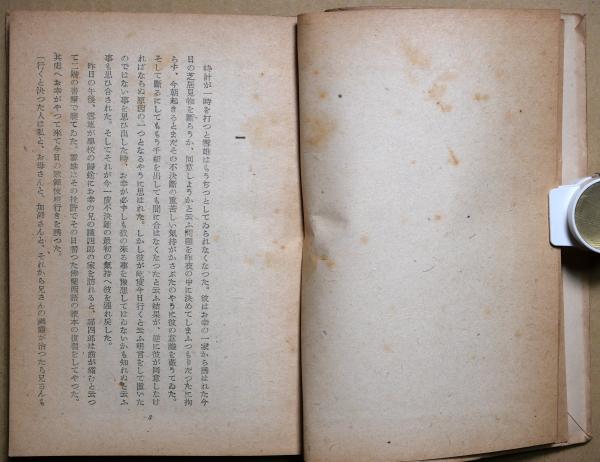 一
時計が一時を打つと雪雄はもうぢつとしてゐられなくなつた。彼はお幸の一家から誘はれた今
日の芝居見物を斷らうか、同意しようかと云ふ問題を昨夜の中に決めてしまふつもりだつたに拘
らず、今朝起きるとまだその不決斷の重苦しい氣持がかさぶたのやうに彼の意識を蔽うてゐた。
そして斷るにしてももう手紙を出しても間に合はなくなつたと云ふ結果が、逆に彼が同意しなけ
ればならぬ原因の一つとなるやうに思はれた。しかし彼が此度今日行くと云ふ明言をして置いた
のではない事を思ひ出した時、お幸が必ずしも彼の來る事を豫想してはゐないかも知れぬと云ふ
事も思ひ合された。そしてそれが今一度不決斷の最初の氣持へ彼を連れ戻した。
昨日の午後、雪雄が學校の歸途にお幸の兄の謹四郎の家を訪れると、謹四郎は齒が痛むと云つ
て二階の書齋で寢てゐた。雪雄はその枕許でその日習つた佛蘭西語の讀本の復習をしてやつた。
其處へお幸がやつて來て今日の歌舞伎座行きを誘つた。
一行くと決つた人は私と、お母さんと、加壽さんと、それから兄さんの齒痛が治つたら兄さんも
3